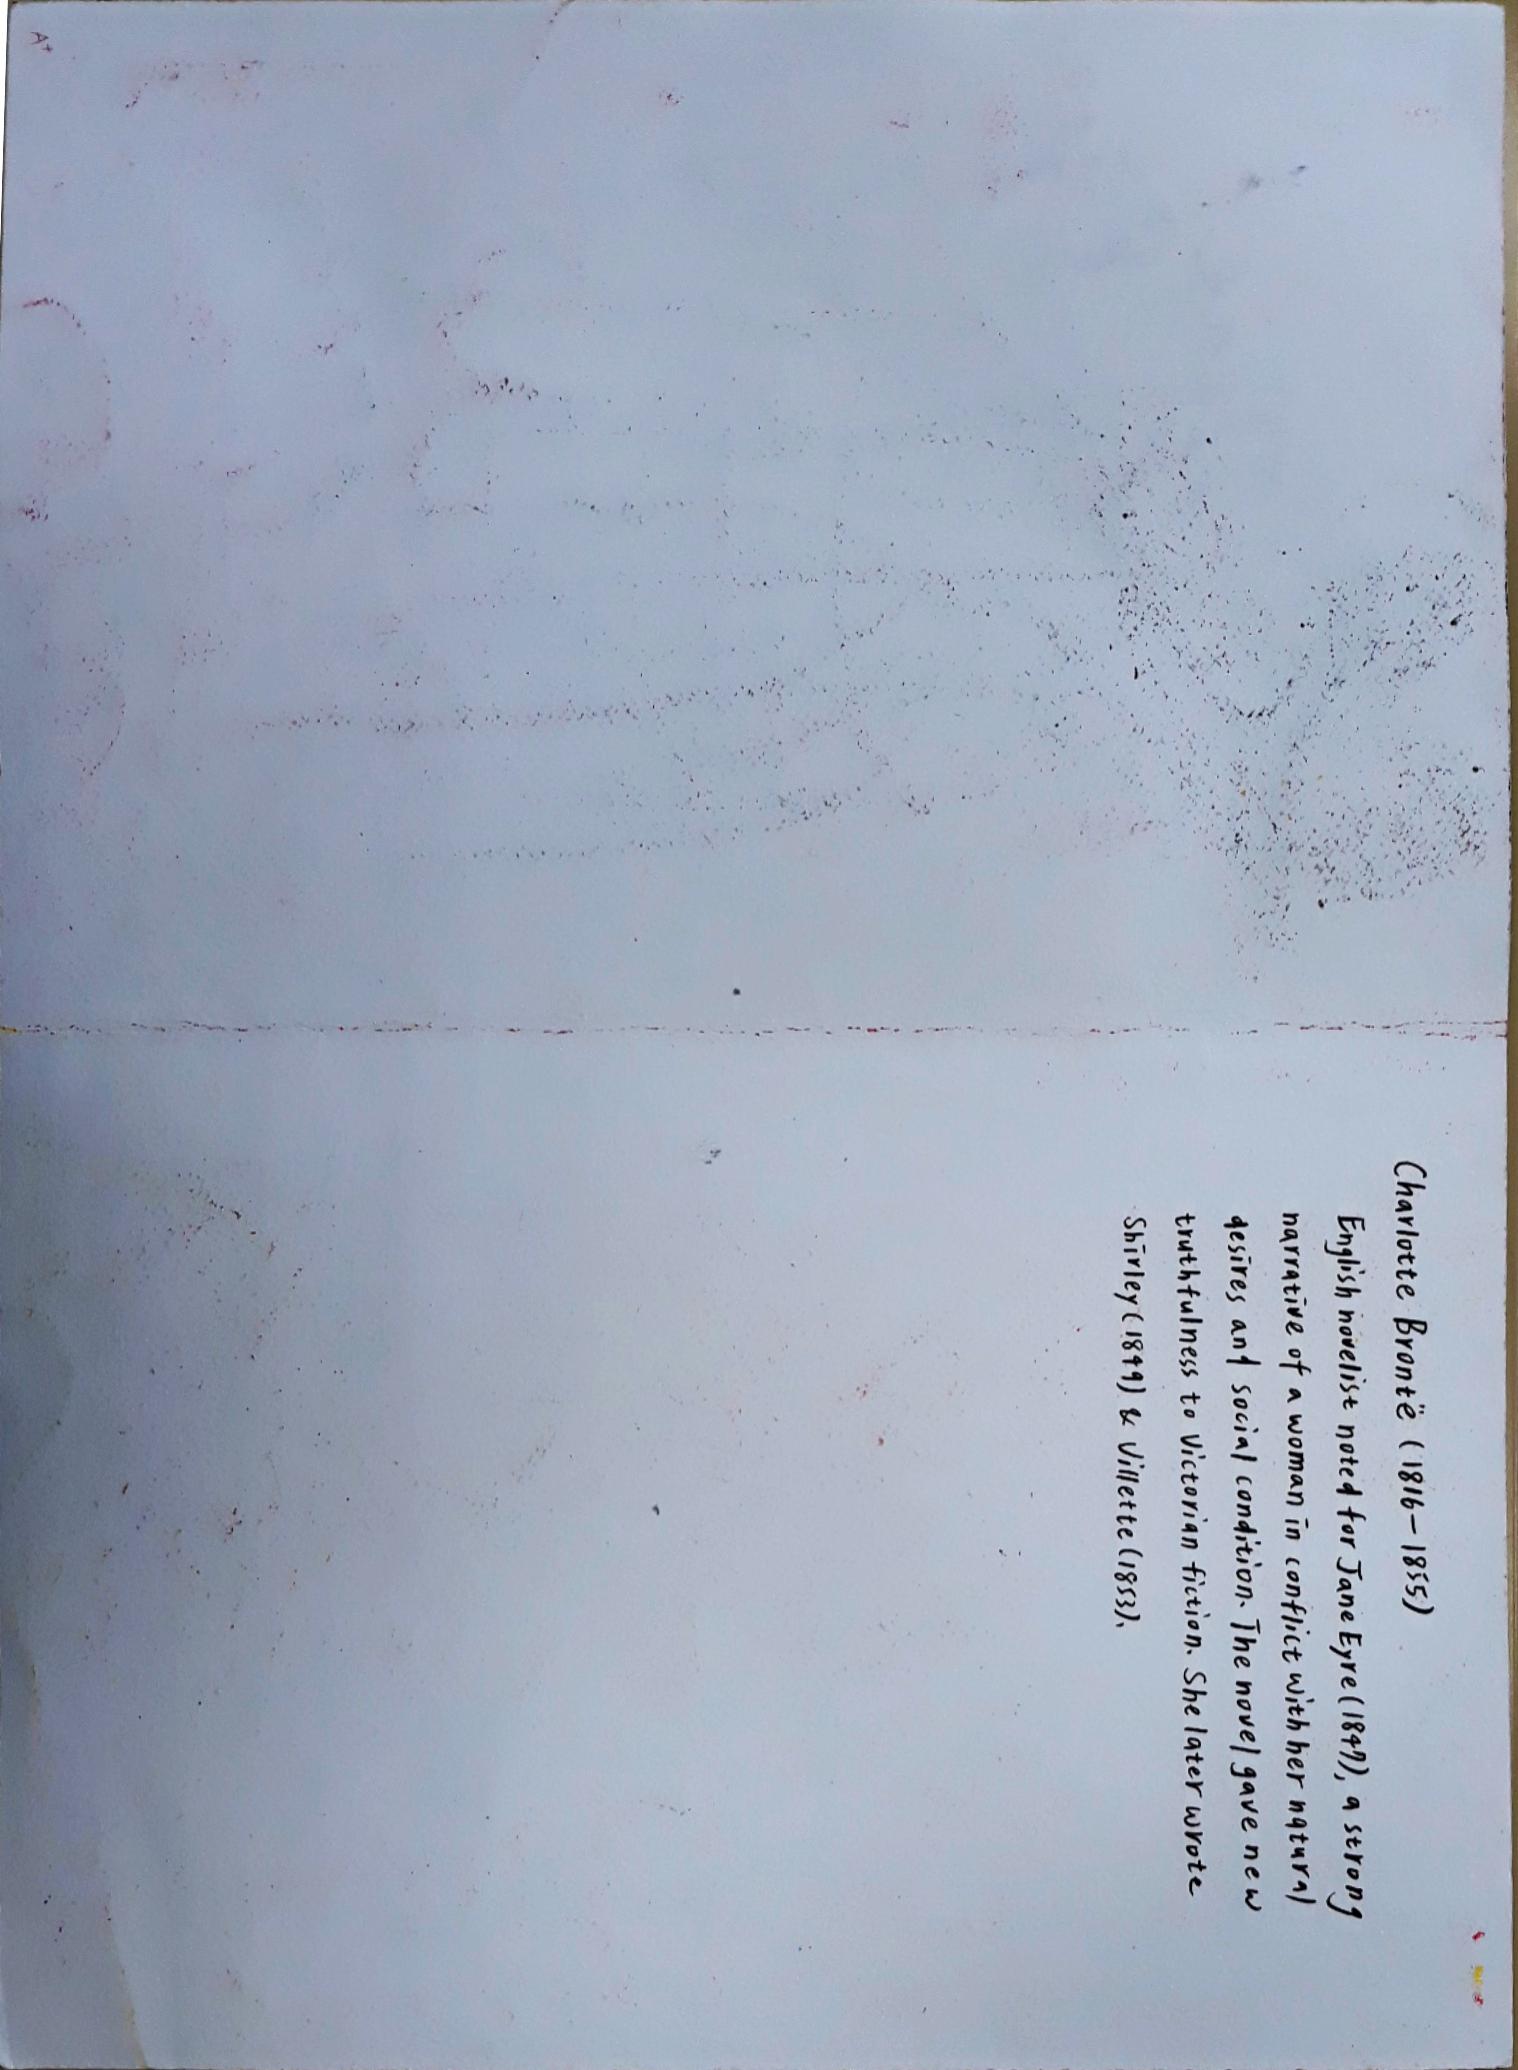 Charlotte Brontë (1816-1855)
English novelist noted for Jane Eyre (1847), a strong
narrative of a woman in conflict with her natural
desires and social condition. The novel gave new
truthfulness to Victorian fiction. She later wrote
Shirley (1849) & Villette (1853).
A+